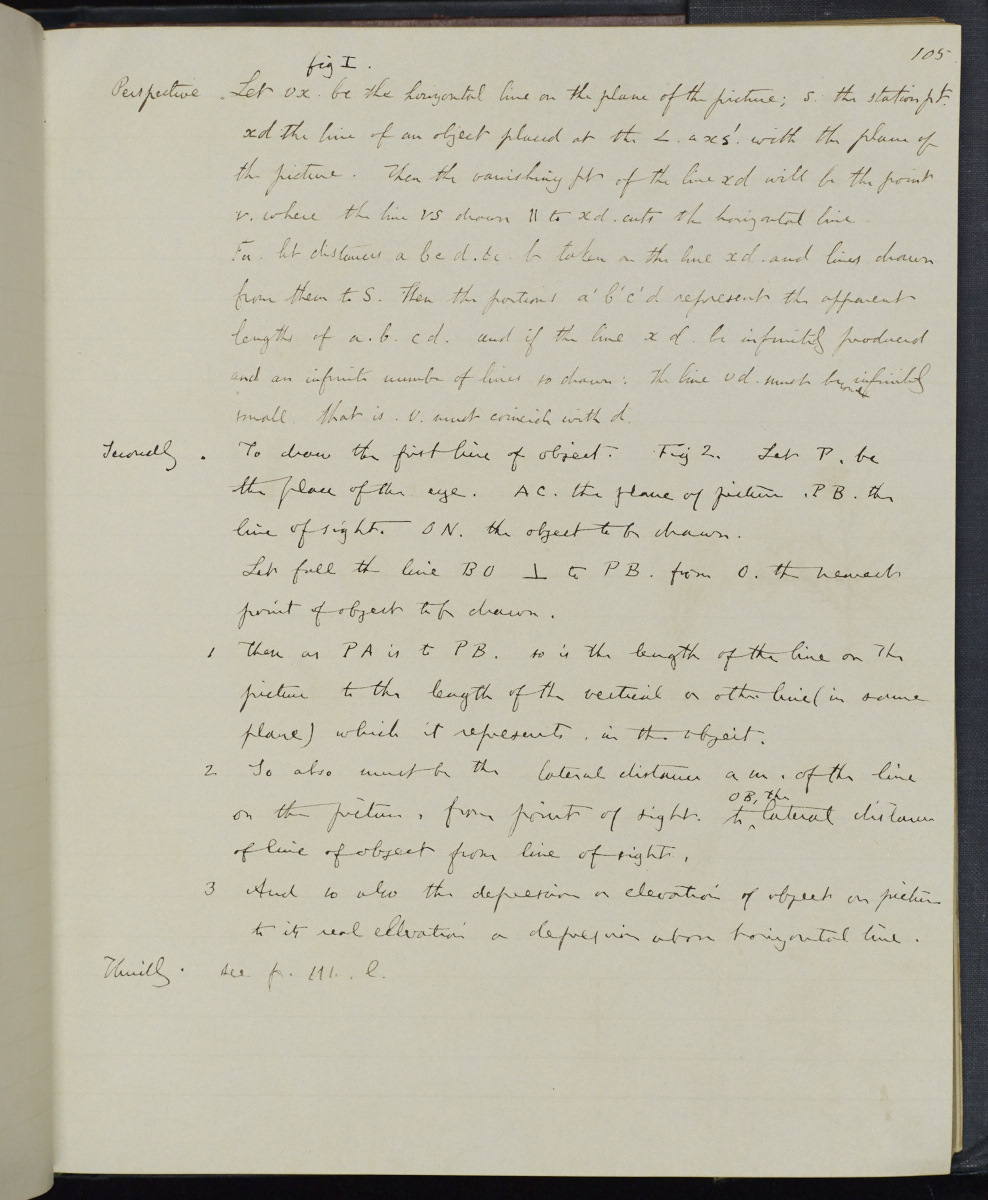 105
fig I.
Perspective. Let vx. be the horizontal line on the plane of the picture; s. the station pt.
xd the line of an object placed at the ∠. axs'. with the plane of
the picture. Then the vanishing pt of the line xd will be the point
v. where the line vs drawn || to xd. cuts the horizontal line
For. let distances a b c d. &c. be taken on the line xd. and lines drawn
from them to S. Then the portions a' b' c' d represent the apparent
lengths of a. b. c d. and if the line x d. be infinitely produced
and an infinite number of lines so drawn: the line vd. must be infinitely
small. that is. v. must coincide with d.
Secondly. To draw the first line of object. Fig 2. Let P. be
the place of the eye. AC. the plane of picture. PB. the
line of sight. ON. the object to be drawn.
Let fall the line BO ⊥ to PB. from O. the nearest
point of object to be drawn.
1 Then as PA is to PB. so is the length of the line on The
picture to the length of the vertical or other line (in same
plane) which it represents. in the object.
2 So also must be the lateral distance a m. of the line
OB, the
on the picture, from point of sight. to lateral distance
of line of object from line of sight.
3 And so also the depression or elevation of object on picture
to its real ellevation or depression above horizontal line.
Thirdly. see p. 111. l.